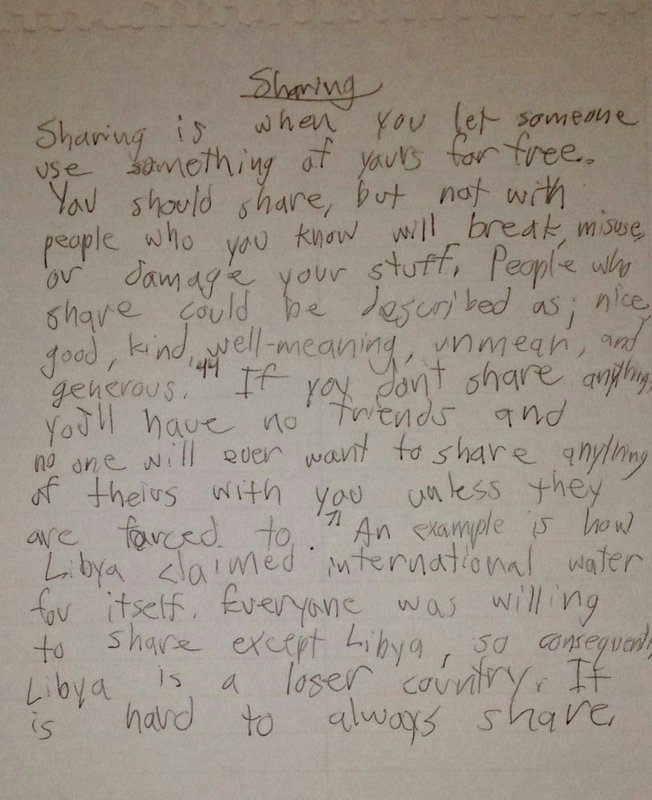 Sharing
Sharing is when you let someone
use something of yours for free.
You should share, but not with
people who you know will break, misuse,
or damage your stuff. People who
share could be described as; nice,
good, kind, well-meaning, unmean, and
generous. 44 If you don't share anything,
you'll have no friends and
no one will ever want to share anything
of theirs with you unless they
are forced to. 71 An example is how
Libya claimed international water
for itself. Everyone was willing
to share except Libya, so consequently
Libya is a loser country. It
is hard to always share